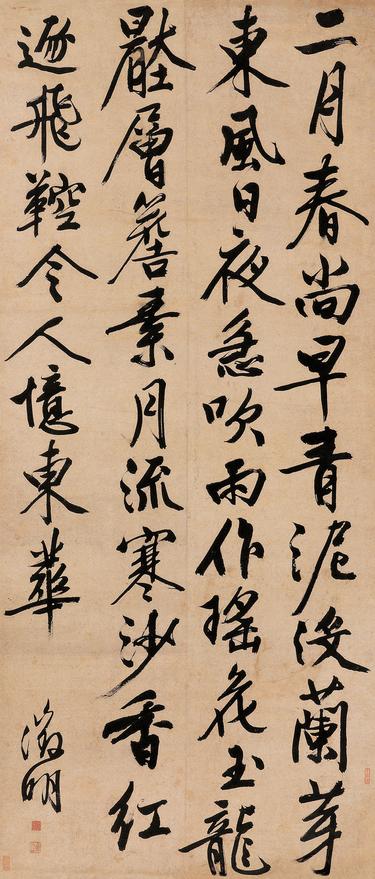 二月春尚早青泥没蘭芽
東風日夜急吹雨作瑤花玉龍
層簷素月流寒沙香紅
逐飛鞚令人憶東華
徵明